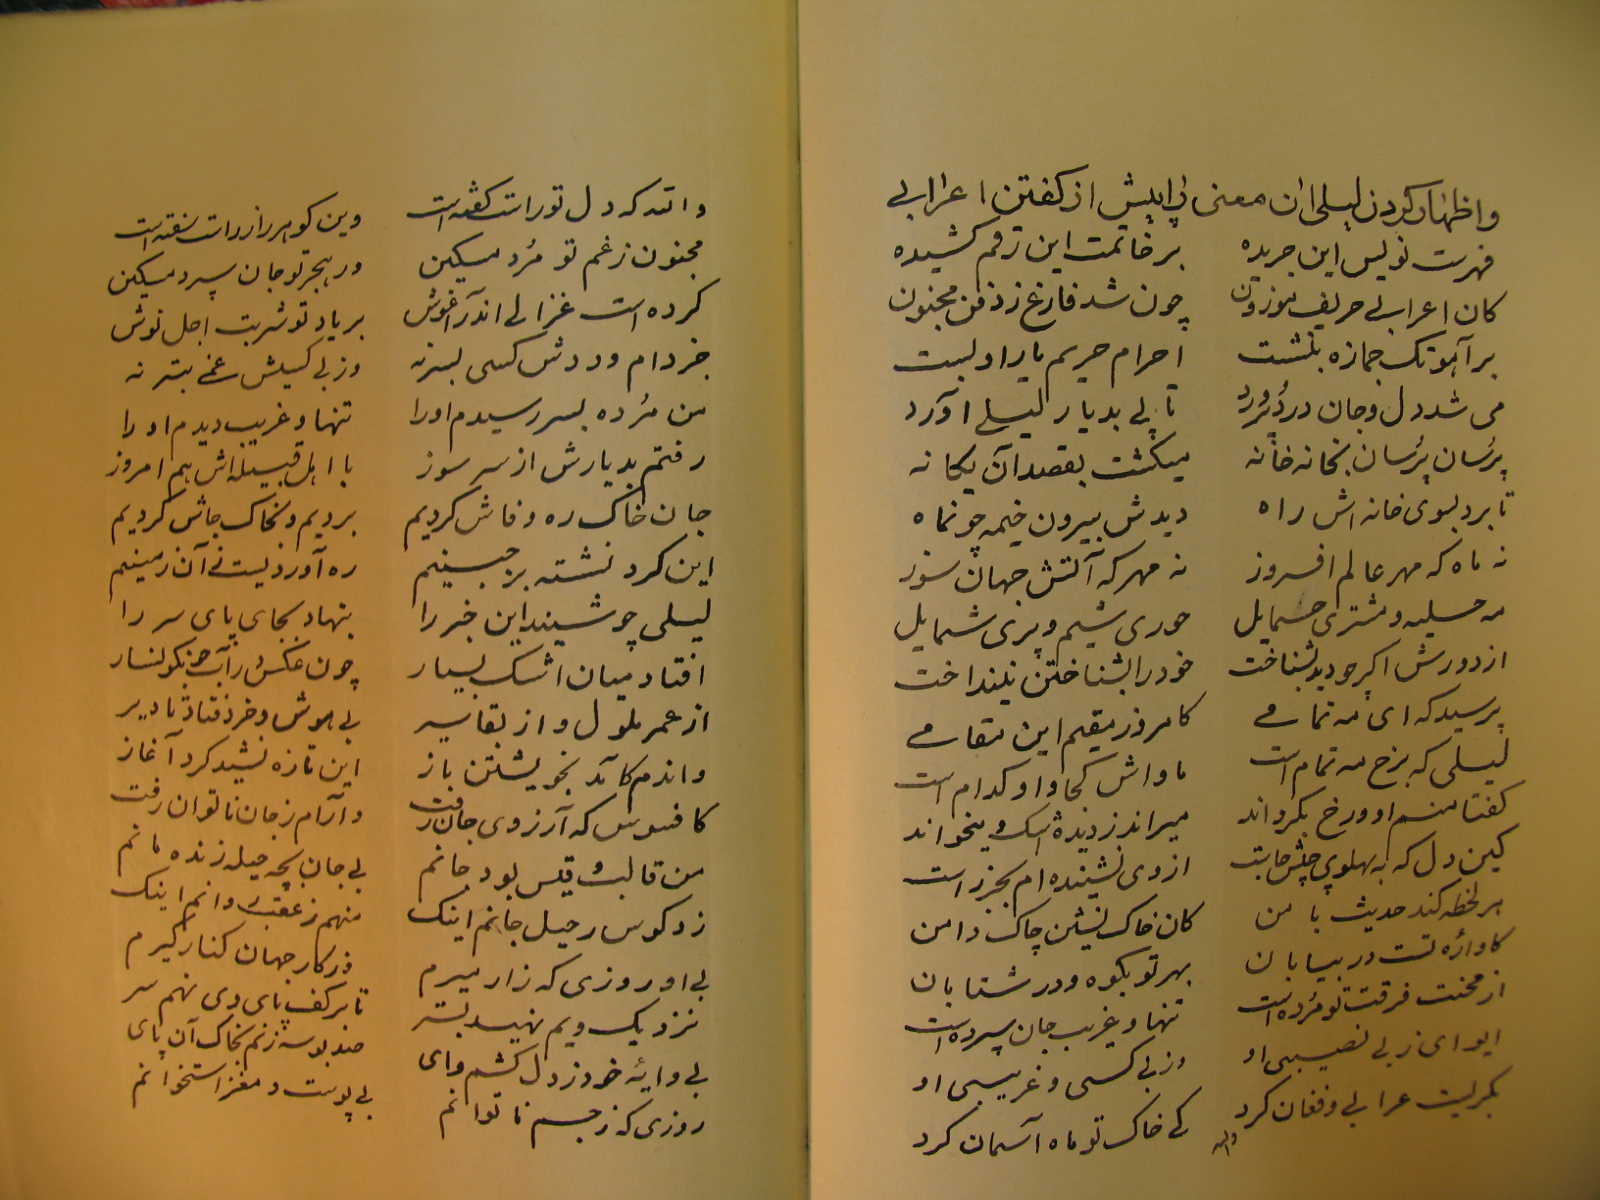 و اظهار کردن لیلی ان معنی را پیش از گفتن اعرابی
فهرست نویس این جریده بر خاتمت این رقم کشیده
کان اعرابی حریف موزون چون شد فارغ ز دفن مجنون
بر آهو تک جمازه بنشست احرام حریم یار او بست
می شد دل و جان درد پرورد تا پی بدیار لیلی آورد
پرسان پرسان بخانه خانه میگشت بقصد آن یگانه
تا برد بسوی خانه اش راه دیدش بیرون خیمه چو نماه
نه ماه که مهر عالم افروز نه مهر که آتش جهان سوز
مه حلیه و مشتری حمایل حوری شیم و پری شمایل
از دورش اگر چو دید بشناخت خود را بشناختن نینداخت
پرسید که ای مه تمامی کامروز مقیم این مقامی
لیلی که برخ مه تمام است ماواش کجا و او کدام است
گفتا منم او و رخ بگرداند میراند ز دیده اشک و میخواند
کین دل که به پهلوی چپش جاست از وی نشینده ام بجز راست
هر لحظه کند حدیث با من کان خاک نشین چاک دامن
کاواره تست در بیابان بهر تو بکوه و در شتابان
از محنت فرقت تو مرده است تنها و غریب جان سپرده است
ایوای ز بی نصیبی او وز بی کسی و غریبی او
بگریست عرابی و فغان کرد کی خاک تو ماه آسمان کرد
والله
والله که دل تو راست گفته است وین گوهر راز راست سفته است
مجنون ز غم تو مُرد مسکین در هجر تو جان سپرد مسکین
کرده است غزالی اندر آغوش بر یاد تو شربت اجل نوش
جز دام و ددش کسی بسر نه وز بی کسیش غمی بتر نه
من مُرده بسر رسیدم او را تنها و غریب دیدم او را
رفتم بدیارش از سر سوز با اهل قبیله اش هم امروز
جان خاک ره وفاش کردیم بردیم و بخاک جاش کردیم
این گرد نشسته بر جبینم ره آورد نیست ز آن زمینم
لیلی چو شنید این خبر را بنهاد بجای پای سر را
افتاد میان اشک بسیار چون عکس در آب جو نگونسار
از عمر ملول و از بقا سیر بی هوش و خرد فتاد تا دیر
واندم که آمد بخویشتن باز این تازه نشید کرد آغاز
کافسوس که آرزوی جان رفت و آرام ز جان ناتوان رفت
من قالب و قیس بود جانم بی جان بچه حیله زنده مانم
زد کوس رحیل جانم اینک منهم ز عقبش دوانم اینک
بی او روزی که زار میرم وز کار جهان کنار گیرم
نزدیک ویم نهید بستر تا بر کف پای وی نهم سر
بی وایه خود ز دل کشم وای صد بوسه زنم بخاک آن پای
روزی که ز جسم ناتوانم بی پوست و مغز استخوانم